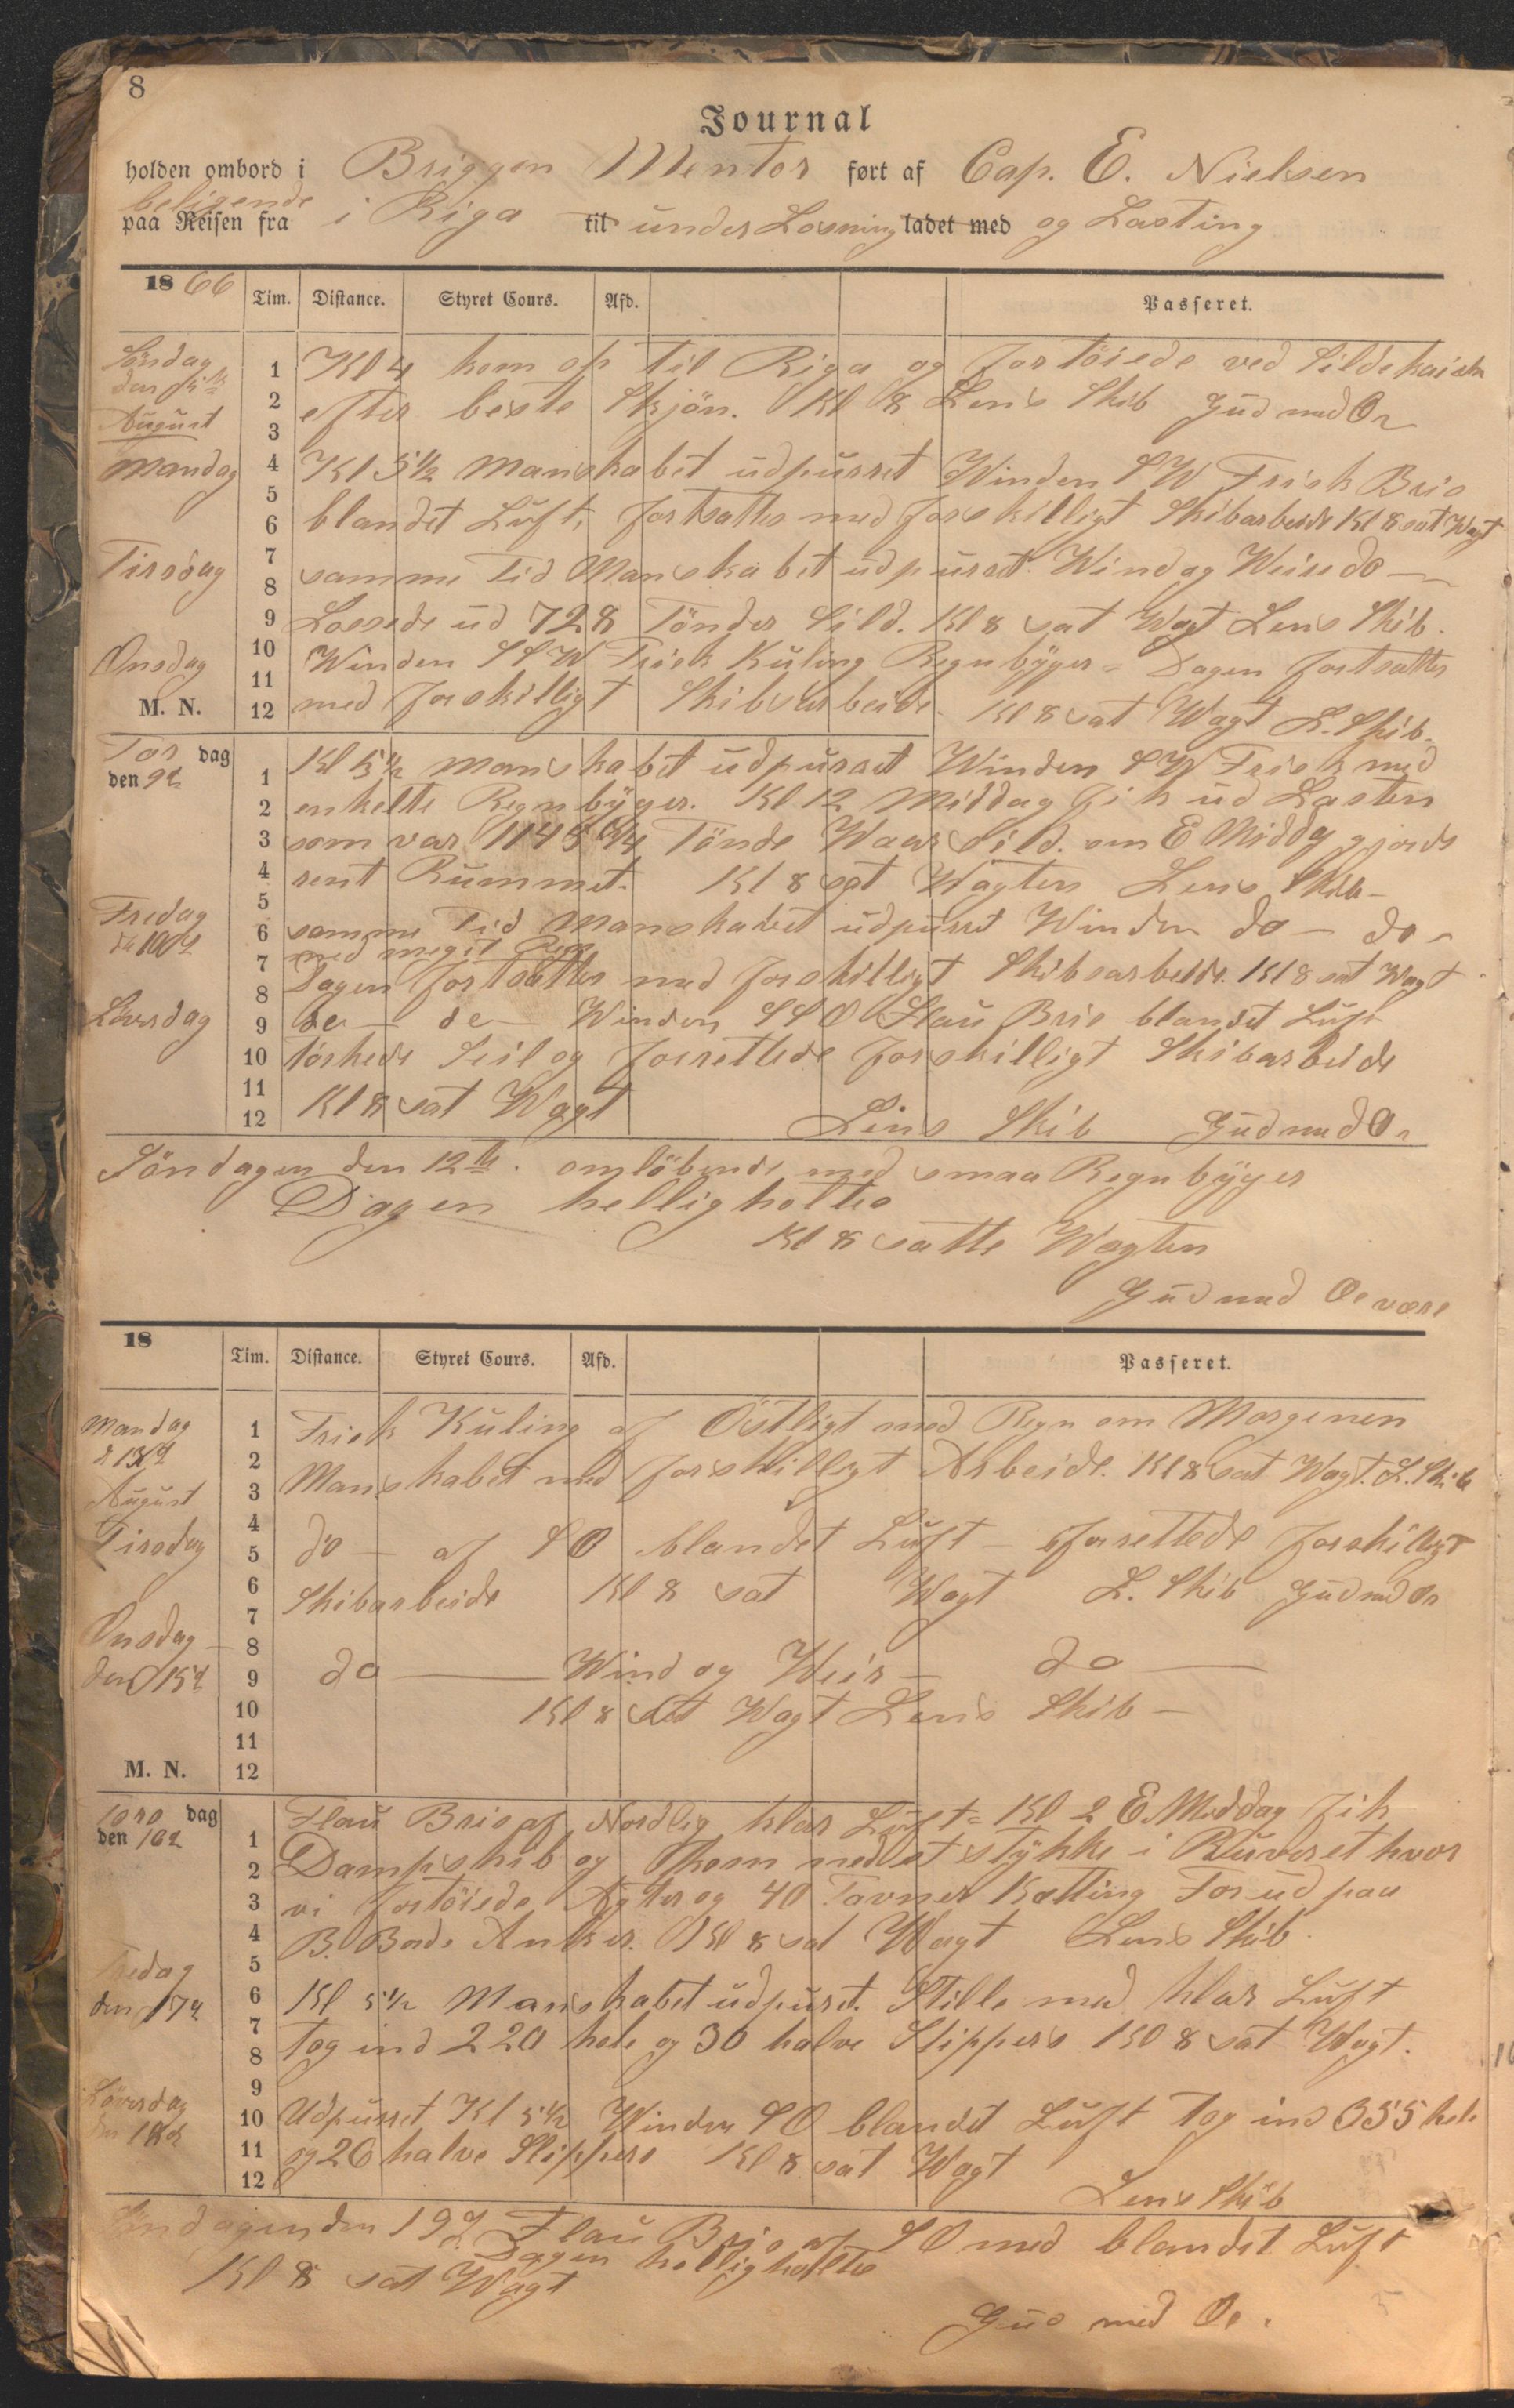 8
Journal
holden ombord i Briggen Mentor ført af Cap. E. Nielsen
beligende
paa Reisen fra i Riga til under Losning ladet med og Lasting
1866 Tim. Distance. Styret Cours. Afd. Passeret.
Söndag den 5te August
1 Kl 4 kom op til Riga og fortöiede ved Sildekaien
2 efter beste Skjön. Kl 8 Lens Skib Gud med Os
3
Mandag
4 Kl 5½ Manskabet udpurret Winden SW Frisk Bris
5
6 blandet Luft, fortsattes med forskilligt Skibarbeide Kl 8 sat Wagt
Tirsdag
7 samme Tid Manskabet udpurret. Wind og Weir do
8
9 Lossede ud 728 Tönder Sild. Kl 8 sat Wagt Lens Skib.
Onsdag
10 Winden SSW Frisk Kuling Regnbyger - Dagen fortsattes
11
M. N. 12 med forskilligt Skibsarbeide. Kl 8 sat Wagt L. Skib.
Tors dag
den 9d
1 Kl 5½ manskabet udpurret Winden SW Frisk med
2 enkelte Regnbyger. Kl 12 Middag fik ud Lasten
3 som var 1145 ¾ Tönde Waar Sild. om E Middg gjorde
4 rent Rummet. Kl 8 sat Wagten Lens Skib -
5
Fredag d 10d
6 samme Tid Manskabet udpurret Winden do - do -
med meget Regn
7 Dagen fortsattes med forskilligt Skibsarbeide. Kl 8 sat Wagt
8
Löversdag
9 do - do - Winden SSO Flau Bris blandet Luft
10 Törkede Seil og forrettede forskilligt Skibarbeide
11 Kl 8 sat Wagt
12 Lens Skib Gud med Os
Söndagen den 12te. omlöbende med smaa Regnbyger
Dagen helligholtes
Kl 8 satte Wagten
Gud med Os være
18 Tim. Distance. Styret Cours. Afd. Passeret.
Mandag d 13d August
1 Frisk Kuling af Östligt med Regn om Morgenen
2 Manskabet med forskilligt Arbeide. Kl 8 sat Wagt. L. Skib
3
Tirsdag
4
5 do - af SO blandet Luft - forrettede forskilligt
6 Skibarbeide Kl 8 sat Wagt L. Skib Gud med Os
7
Onsdag den 15d
8 do - Wind og Weir - do -
9
10 Kl 8 sat Wagt Lens Skib -
11
M. N. 12
Tors dag
den 16d
1 Flau Bris af Nordlig klar Luft - Kl 2 E. Middag fik
2 Dampskib og kom ned et stykke i Ruveret hvor
3 vi fortöiede Agter og 40 Favner Kætting Forud paa
4 B. Bords Anker. Kl 8 sat Wagt Lens Skib.
5
Fredag den 17d
6 Kl 5½ Manskabet udpurret. Stille med klar Luft
7
8 Tog ind 220 hele og 30 halve Slippers Kl 8 sat Wagt.
9
Löversdag den 18d
10 Udpurret Kl 5½ Winden SO blandet Luft Tog ind 355 hele
11 og 26 halve Slippers Kl 8 sat Wagt
12 Lens Skib
Söndagen den 19d. Flau Bris af SO med blandet Luft
Dagen helligholtes
Kl 8 sat Wagt
Gud med Os.